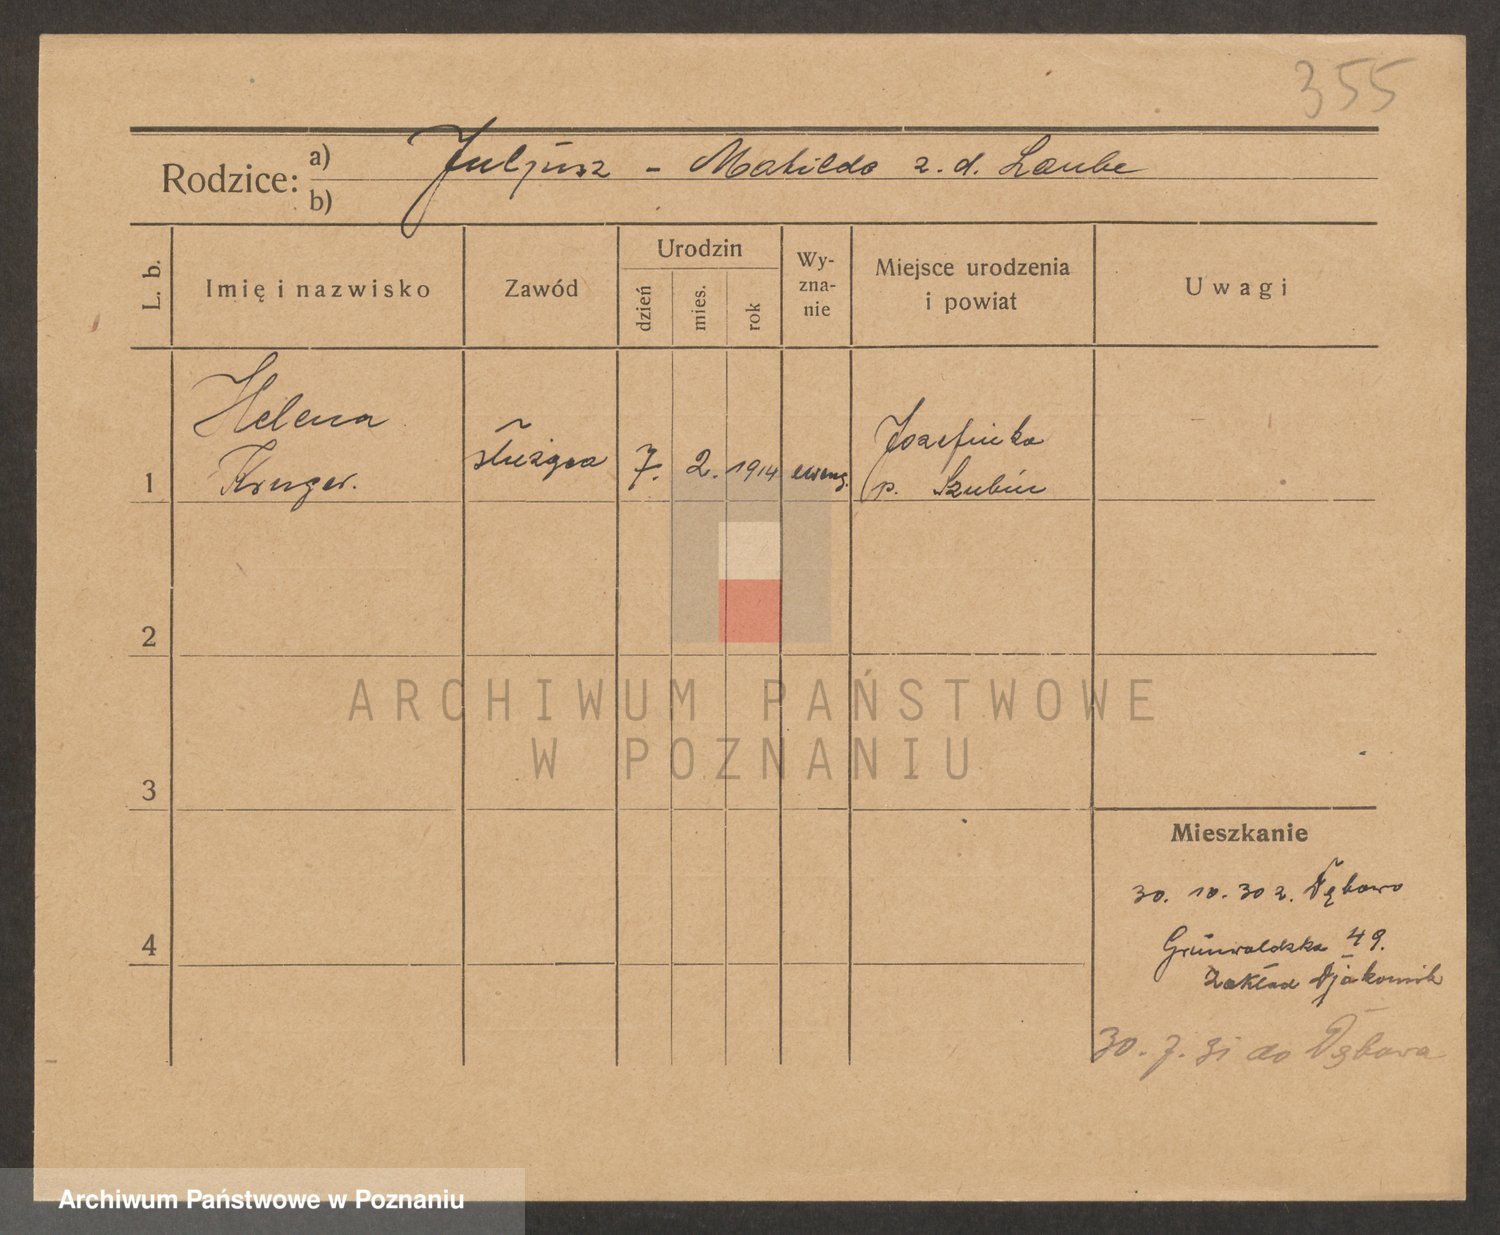 355
Rodzice:
a) Juljusz - Matilda z. d. Laube
b)
L. b.
Imię i nazwisko
Zawód
Urodzin
dzień
mies.
rok
Wy-
zna-
nie
Miejsce urodzenia
i powiat
Uwagi
Helena
Kruger.
służąca
1
7. 2. 1914 ewang.
Jozefinka
p. Szubin
2
3
4
Mieszkanie
30. 10. 30 z. Dębowo
Grunwaldzka 49.
Zakład Djakonisk
30. 7. 31 do Dębowa
ARCHIWUM PAŃSTWOWE
W POZNANIU
Archiwum Państwowe w Poznaniu